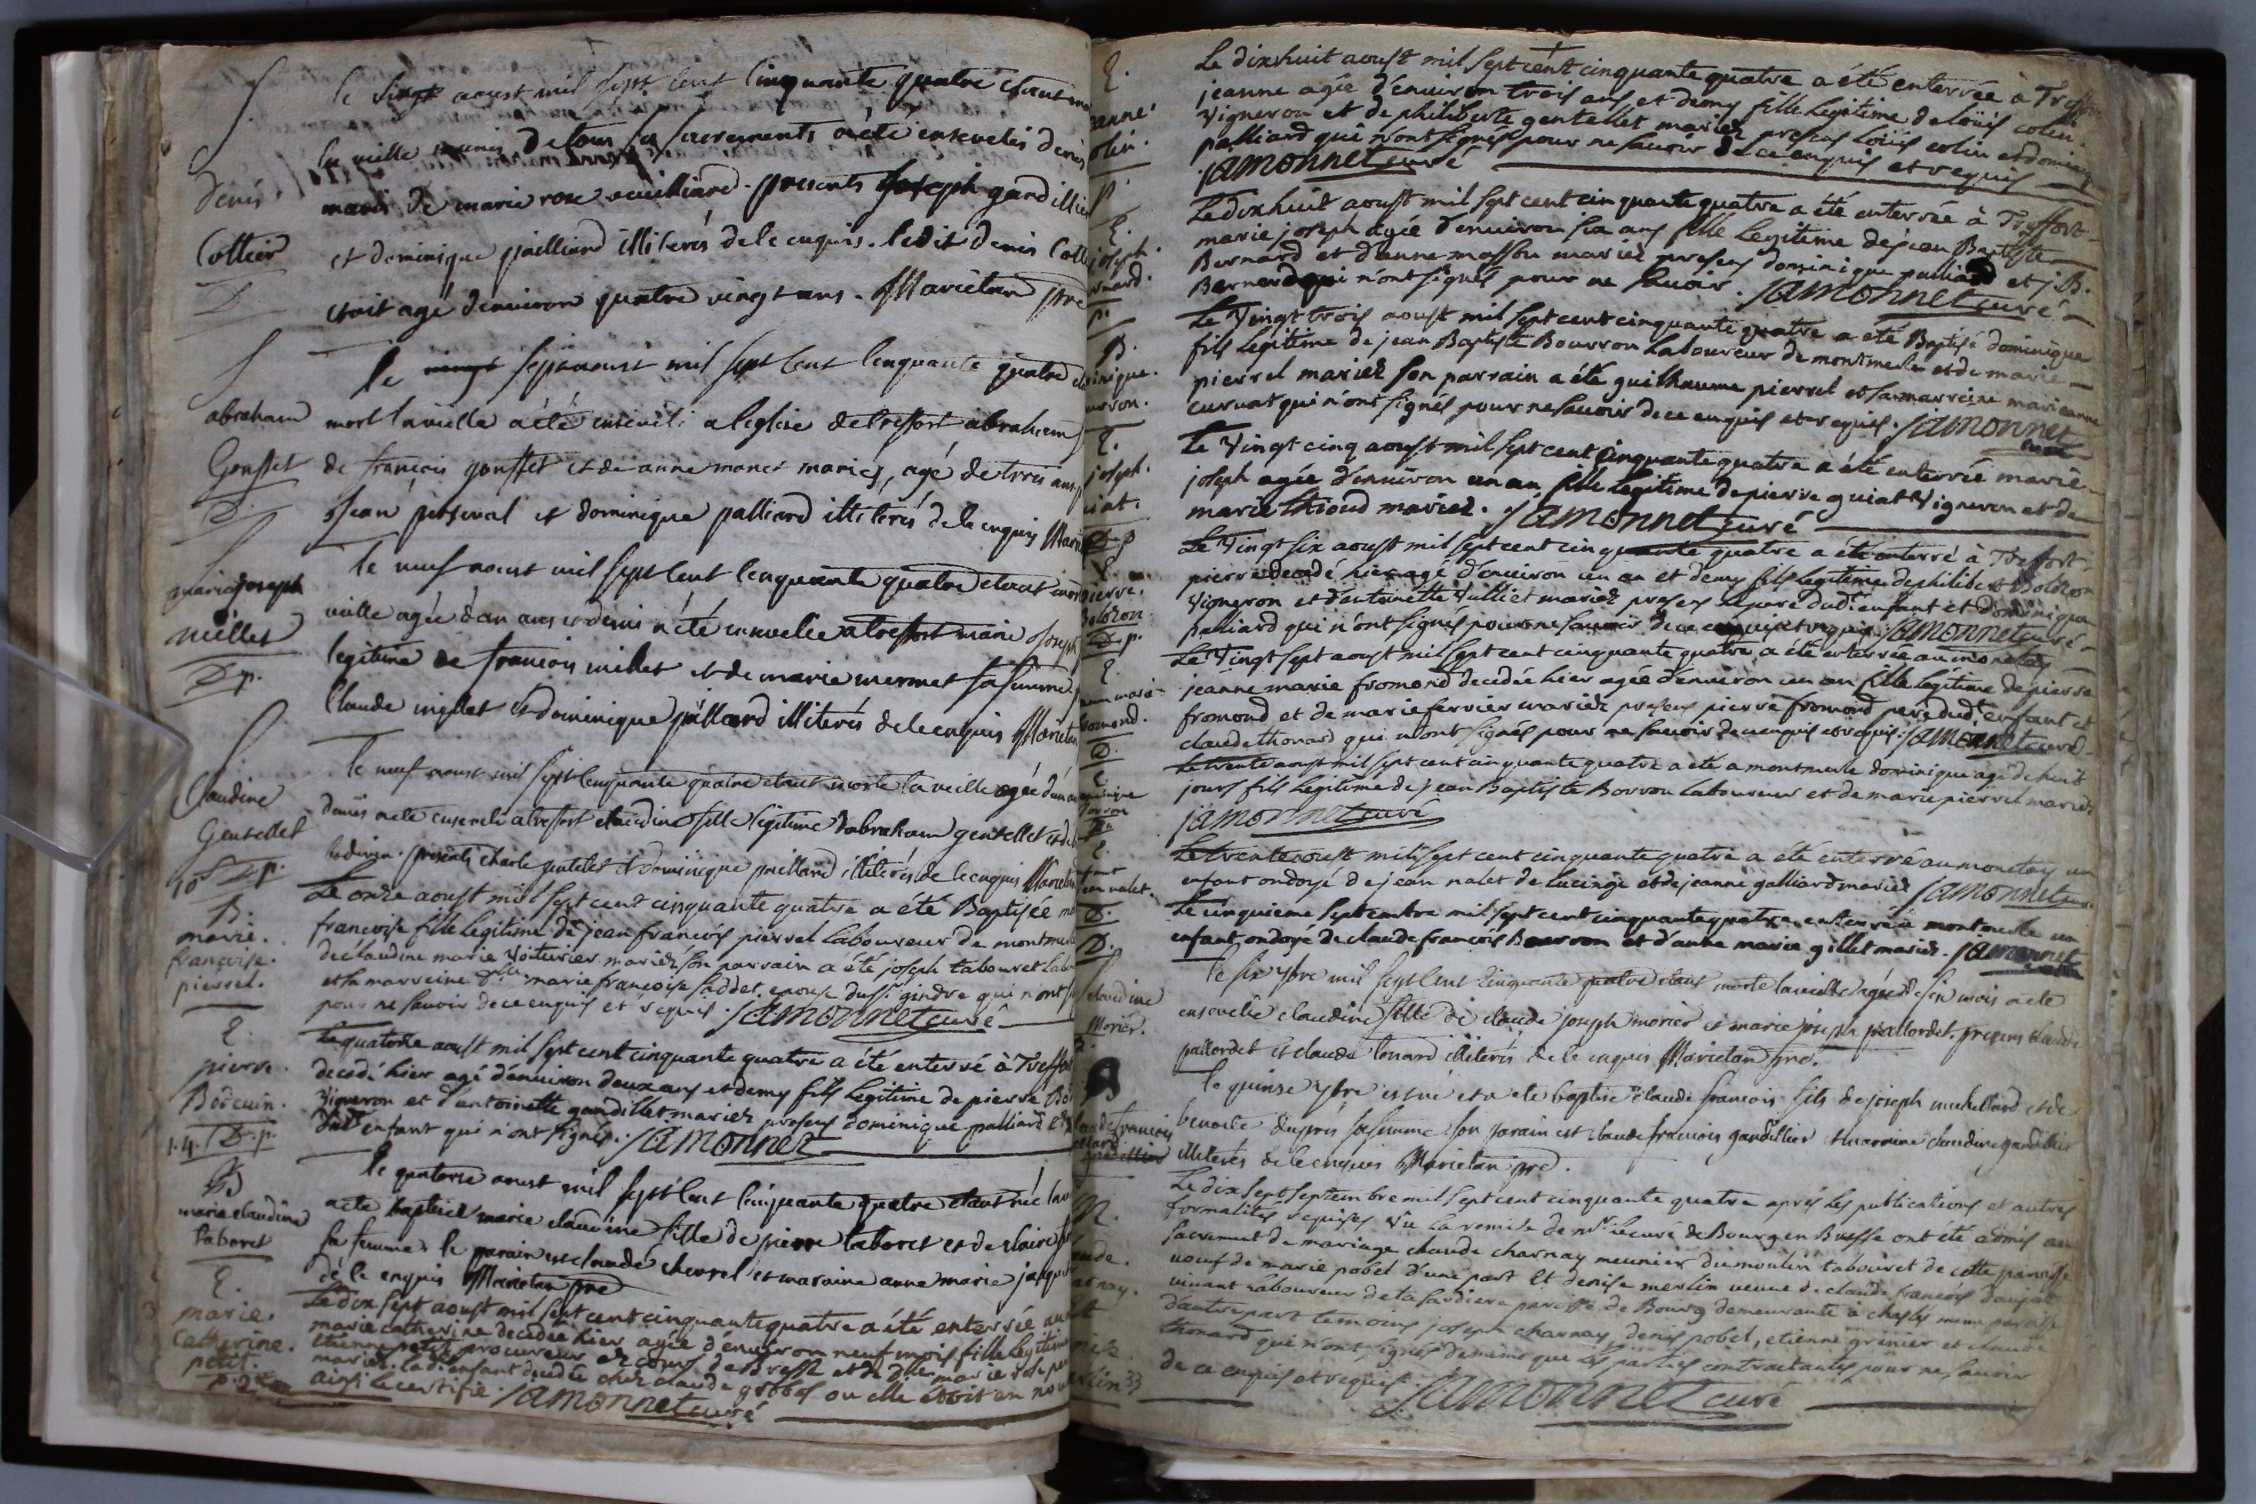 S
denis
Collier
D
le aoust mil sept cent cinquante quatre étant mo
la veille munis de tous sacrements a été enseveli denis
mari de marie rose veuilliard. presents joseph gandillie
et dominique pailliard illiterés de le enquis. ledit denis Coll
etoit agé d'environ quatre vingt ans. Marietan ptre
S
abraham
Gousset
D
le sept aoust mil sept cent cinquante quatre
mort la veille a été enseveli a leglise de treffort abraham
de françois gousset et de anne monet mariés, agé de trois ans
jean perseval et dominique palliard illiterés de le enquis Marie
S
marie joseph
millet
D p.
le neuf aoust mil sept cent cinquante quatre etant mor
veille agée d'un ans et demis a été ensevelie a treffort marie joseph
legitime de francois millet et de marie mermet sa femme
Claude millet et dominique paillard illiterés de le enquis Marietan
S
Claudine
Gentellet
10 D p.
le neuf aoust mil sept cinquante quatre etant morte la veille agée d'un an
demis a été ensevelie a treffort claudine fille legitime d'abraham gentellet et de
presents charle gentelet et dominique paillard illiterés de le enquis Marietan
B.
marie.
françoise.
pierrel.
Le onze aoust mil sept cent cinquante quatre a été Baptisée ma
françoise fille legitime de jean françois pierrel laboureur de montmerle
de claudine marie voiturier mariez son parrain a été joseph tabouret labo
et sa marreine dlle marie françoise saddet epouse du sr gindre qui n'ont
pour ne savoir de ce enquis et requis. jamonnet curé
E.
pierre.
Bodouin.
1.4. D. p.
Le quatorze aoust mil sept cent cinquante quatre a été enterré à Treffort
decedé hier agé d'environ deux ans et demy fils legitime de pierre Bo
vigneron et d'antoinette gandillet mariez presens dominique palliard et
dudt enfant qui n'ont signés. jamonnet
B
marie claudine
taboret
le quatorse aoust mil sept cent cinquante quatre etant née
a ete baptisé marie claudine fille de pierre taboret et de claire
sa femme. le parain est claude chevrel et maraine anne marie jaque
de le enquis Marietan ptre
E.
marie.
Catherine.
petit.
Le dix sept aoust mil sept cent cinquante quatre a été enterrée au
marie catherine decedée hier agée d'environ neuf mois fille legitime
etienne petit procureur ez cours de Bresse et de dlle marie rose
mariez. ladt enfant decedée chez claude grobos ou elle étoit en no
ainsi le certifie. jamonnet curé
E.
jeanne
colin.
p.
Le dixhuit aoust mil sept cent cinquante quatre a été enterrée à Treffort
jeanne agée d'environ trois ans et demy fille legitime de loüis colin
vigneron et de philiberte gentellet mariez presens loüis colin et dominiq
palliard qui n'ont signés pour ne savoir de ce enquis et requis
jamonnet curé
E.
joseph
Bernard.
p.
Le dixhuit aoust mil sept cent cinquante quatre a été enterrée à Treffort
marie joseph agée d'environ six ans fille legitime de jean Baptiste
Bernard et d'anne masson mariez presens dominique palliard et j. B.
Bernard qui n'ont signés pour ne savoir. jamonnet curé
B.
dominique.
Bourron.
Le vingt trois aoust mil sept cent cinquante quatre a été Baptisé dominique
fils legitime de jean Baptiste Bourron laboureur de montmerle et de marie
pierrel mariez son parrain a été guilhaume pierrel et sa marreine marianne
curvat qui n'ont signés pour ne savoir de ce enquis et requis. jamonnet
curé
E.
joseph.
guiat.
D p
Le vingt cinq aoust mil sept cent cinquante quatre a été enterrée marie
joseph agée d'environ un an fille legitime de pierre guiat vigneron et de
marie thioud mariez. jamonnet curé
E.
pierre.
Bolozon.
D p.
Le vingt six aoust mil sept cent cinquante quatre a été enterré à Treffort
pierre decedé hier agé d'environ un an et demy fils legitime de philibert Bolozon
vigneron et d'antoinette vulliet mariez presens le pere dudt enfant et dominique
palliard qui n'ont signés pour ne savoir de ce enquis et requis. jamonnet curé
E.
jeanne marie
fromond.
D.
Le vingt sept aoust mil sept cent cinquante quatre a été enterrée au monetay
jeanne marie fromond decedée hier agée d'environ un an fille legitime de pierre
fromond et de marie ferrier mariez presens pierre fromond pere dudt enfant et
claude thonard qui n'ont signés pour ne savoir de ce enquis et requis. jamonnet curé
E
dominique
Borron
D
Le trente aoust mil sept cent cinquante quatre a été a montmerle dominique agé de huit
jours fils legitime de jean Baptiste Borron laboureur et de marie pierrel mariez
jamonnet curé
E.
enfant
jean nalet.
D.
Le trente aoust mil sept cent cinquante quatre a été enterré au monetay un
enfant ondoyé de jean nalet de lucinge et de jeanne galliard mariez jamonnet curé
D.
Le cinquieme septembre mil sept cent cinquante quatre enterré a montmerle un
enfant ondoyé de claude françois Bourron et d'anne marie gillet mariez. jamonnet
S
claudine
Morier.
le six 7bre mil sept cent cinquante quatre etant morte la veille agée de six mois a ete
ensevelie claudine fille de claude joseph morier et marie joseph pallordet. presens claude
pallordet et claude tonard illiterés de le enquis Marietan ptre.
B
claude francois
le quinze 7bre est né et a ete baptisé claude francois fils de joseph michellard et de
benoite duprés sa femme son parain est claude francois gandillier et maraine claudine gandillier
illiterés de le enquis Marietan ptre.
M.
claude.
charnay.
et
denise
merlin 33
Le dix sept septembre mil sept cent cinquante quatre après les publications et autres
formalités requises vu la remise de mr le curé de Bourg en Bresse ont été admis au
sacrement de mariage claude charnay meunier du moulin tabouret de cette paroisse
veuf de marie pobel d'une part et denise merlin veuve de claude françois daujat
vivant laboureur de la sardiere paroisse de Bourg demeurante à chasles meme paroisse
d'autre part temoins joseph charnay, denis pobel, etienne grinier et claude
thonard qui n'ont signés de meme que les parties contractantes pour ne savoir
de ce enquis et requis. jamonnet curé